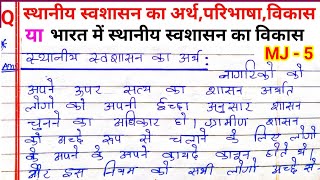 Q स्थानीय स्वशासन का अर्थ,परिभाषा,विकास
या भारत में स्थानीय स्वशासन का विकास
MJ - 5
Ans स्थानीय स्वशासन का अर्थ :
नागरिकों को
अपने ऊपर सत्य का शासन अर्थात
लोगों को अपनी ईच्छा अनुसार शासन
चुनने का अधिकार हो। ग्रामीण शासन
को अच्छे रूप से चलाने के लिए लोगों
के अपने के अपने कायदे कानून होते थे।
इस नियम को सभी लोग अच्छे से